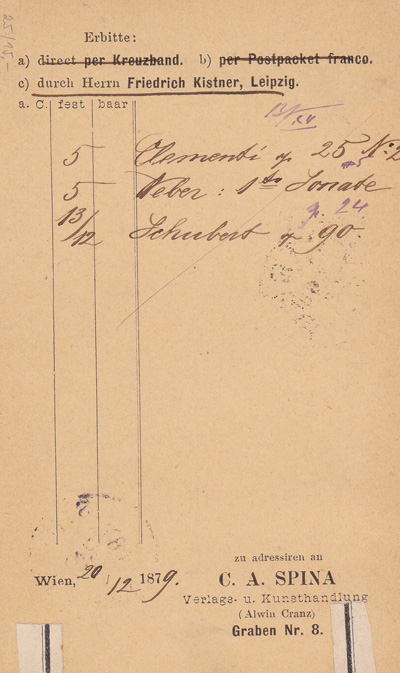 25/15.-
Erbitte:
a) direct per Kreuzband. b) per Postpacket franco.
c) durch Herrn Friedrich Kistner, Leipzig.
a. C. fest baar
5 Clementi op 25 No 2
5 Weber: 1te Sonate
op. 24
13/12 Schubert op 90.
zu adressiren an
Wien, 20/12 1879. C. A. SPINA
Verlags- u. Kunsthandlung
(Alwin Cranz)
Graben Nr. 8.